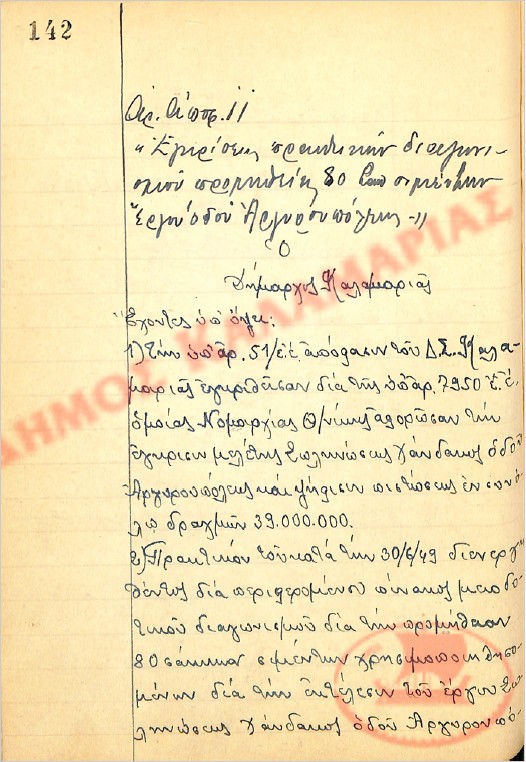 142
Αρ. Αποφ. 11
"Εγκρίσεως πρακτικών διαγωνι-
σμού προμηθείας 80 σιμέντων
Έργου οδού Αργυρουπόλεως -"
Ο
Δήμαρχος Καλαμαριάς
Έχοντες υπ' όψει:
1) Την υπ' αρ. 51/ε.έ. απόφασιν του Δ.Σ. Καλα-
μαριάς εγκριθείσαν διά της υπ' αρ. 7950 ε.έ.
ομοίας Νομαρχίας Θ/νίκης αφορώσαν την
έγκρισιν μελέτης Σωληνώσεως χάνδακος οδού
Αργυρουπόλεως και ψήφισιν πιστώσεως εν συνό-
λω δραγμών 39.000.000.
2) Πρακτικόν του κατά την 30/6/49 διενεργη-
θέντος διά περιφερομένου πίνακος μειοδο-
τικού διαγωνισμού διά την προμήθειαν
80 σάκκων σιμέντων χρησιμοποιηθησο-
μένων διά την εκτέλεσιν του έργου Σω-
ληνώσεως χάνδακος οδού Αργυρουπό-
ΔΗΜΟΣ ΚΑΛΑΜΑΡΙΑΣ